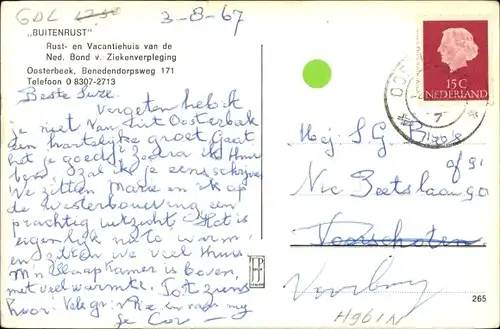 GDL 12.50
3-8-67
„BUITENRUST"
Rust- en Vacantiehuis van de
Ned. Bond v. Ziekenverpleging
Oosterbeek, Benedendorpsweg 171
Telefoon 0 8307-2713
Beste Suze.
Vergeten heb ik
je niet Van uit Oosterbeek
een hartelijke groet Gaat
het je goed? Zoodra ik thuis
ben zal ik je eens schrijven
We zitten Marie en ik op
de Westerbouwing een
prachtig uitzicht. Het is
eigenlijk nu te warm,
en zitten we veel thuis
M'n slaapkamer is boven,
met veel warmte. Tot ziens
hoor. Vele gr. v. Mie en van mij
je Cor
15C
NEDERLAND
Mej S G
Nic Beetslaan 90
Voorschoten
Voorburg
H961N
265